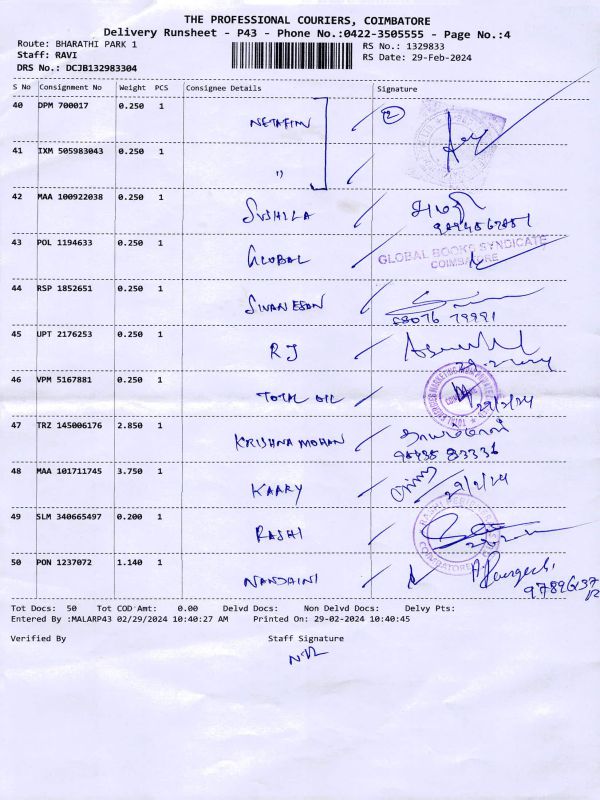 THE PROFESSIONAL COURIERS, COIMBATORE
Delivery Runsheet - P43 - Phone No.:0422-3505555 - Page No.:4
Route: BHARATHI PARK 1 RS No.: 1329833
Staff: RAVI RS Date: 29-Feb-2024
DRS No.: DCJB132983304
S No Consignment No Weight PCS Consignee Details Signature
40 DPM 700017 0.250 1 NETAFIM 2
41 IXM 505983043 0.250 1 "
42 MAA 100922038 0.250 1 SUSHILA
43 POL 1194633 0.250 1 GLOBAL GLOBAL BOOKS SYNDICATE
COIMBATORE
44 RSP 1852651 0.250 1 SIVANESAN
68076 79991
45 UPT 2176253 0.250 1 RJ
46 VPM 5167881 0.250 1 TOTAL OIL 29/2/24
47 TRZ 145006176 2.850 1 KRISHNA MOHAN
48 MAA 101711745 3.750 1 KAARY 29/2/24
49 SLM 340665497 0.200 1 RASHI
50 PON 1237072 1.140 1 NANDHINI
Tot Docs: 50 Tot COD Amt: 0.00 Delvd Docs: Non Delvd Docs: Delvy Pts:
Entered By :MALARP43 02/29/2024 10:40:27 AM Printed On: 29-02-2024 10:40:45
Verified By Staff Signature